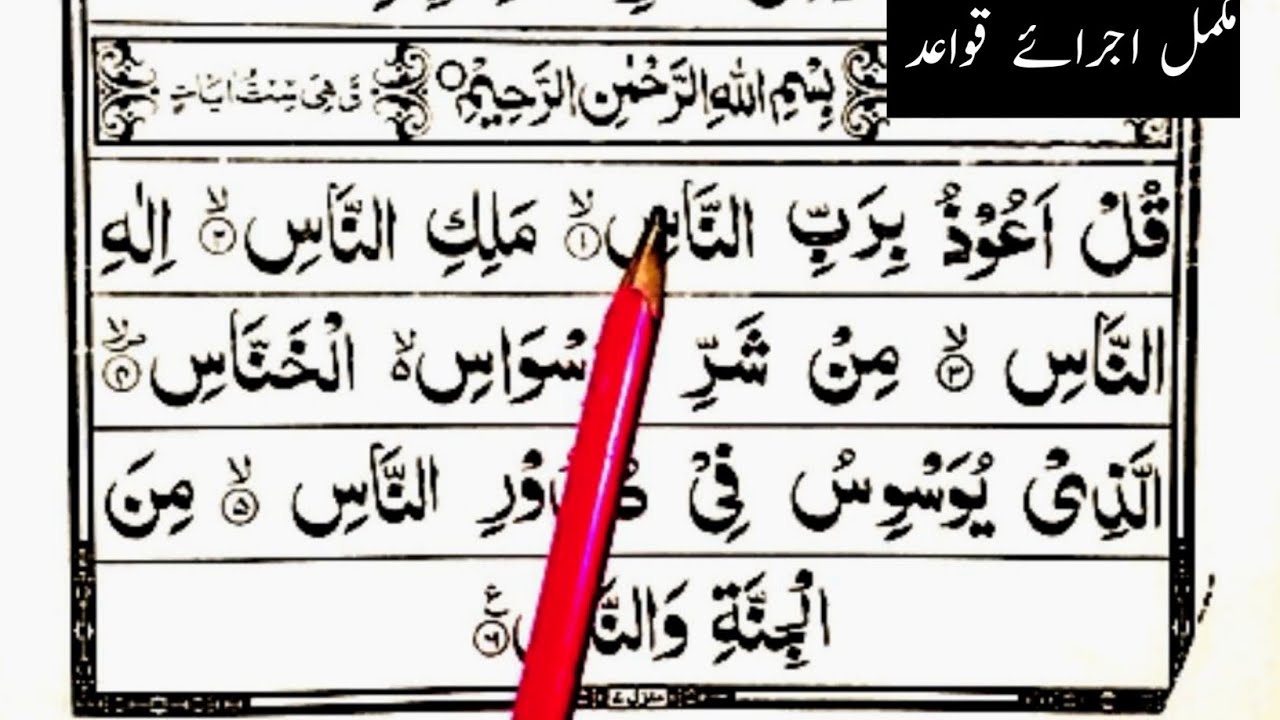 مکمل اجرائے قواعد
بِسْمِ اللهِ الرَّحْمٰنِ الرَّحِيْمِ
وَّ هِيَ سِتُّ اٰيَاتٍ
قُلْ اَعُوْذُ بِرَبِّ النَّاسِ ۙ﴿۱﴾ مَلِكِ النَّاسِ ۙ﴿۲﴾ اِلٰهِ
النَّاسِ ۙ﴿۳﴾ مِنْ شَرِّ سْوَاسِ ۙ۬ الْخَنَّاسِ ﴿۴﴾
الَّذِىْ يُوَسْوِسُ فِىْ النَّاسِ ۙ﴿۵﴾ مِنَ
الْجِنَّةِ وَالنَّ ﴿۶﴾ ع
منزل ۷